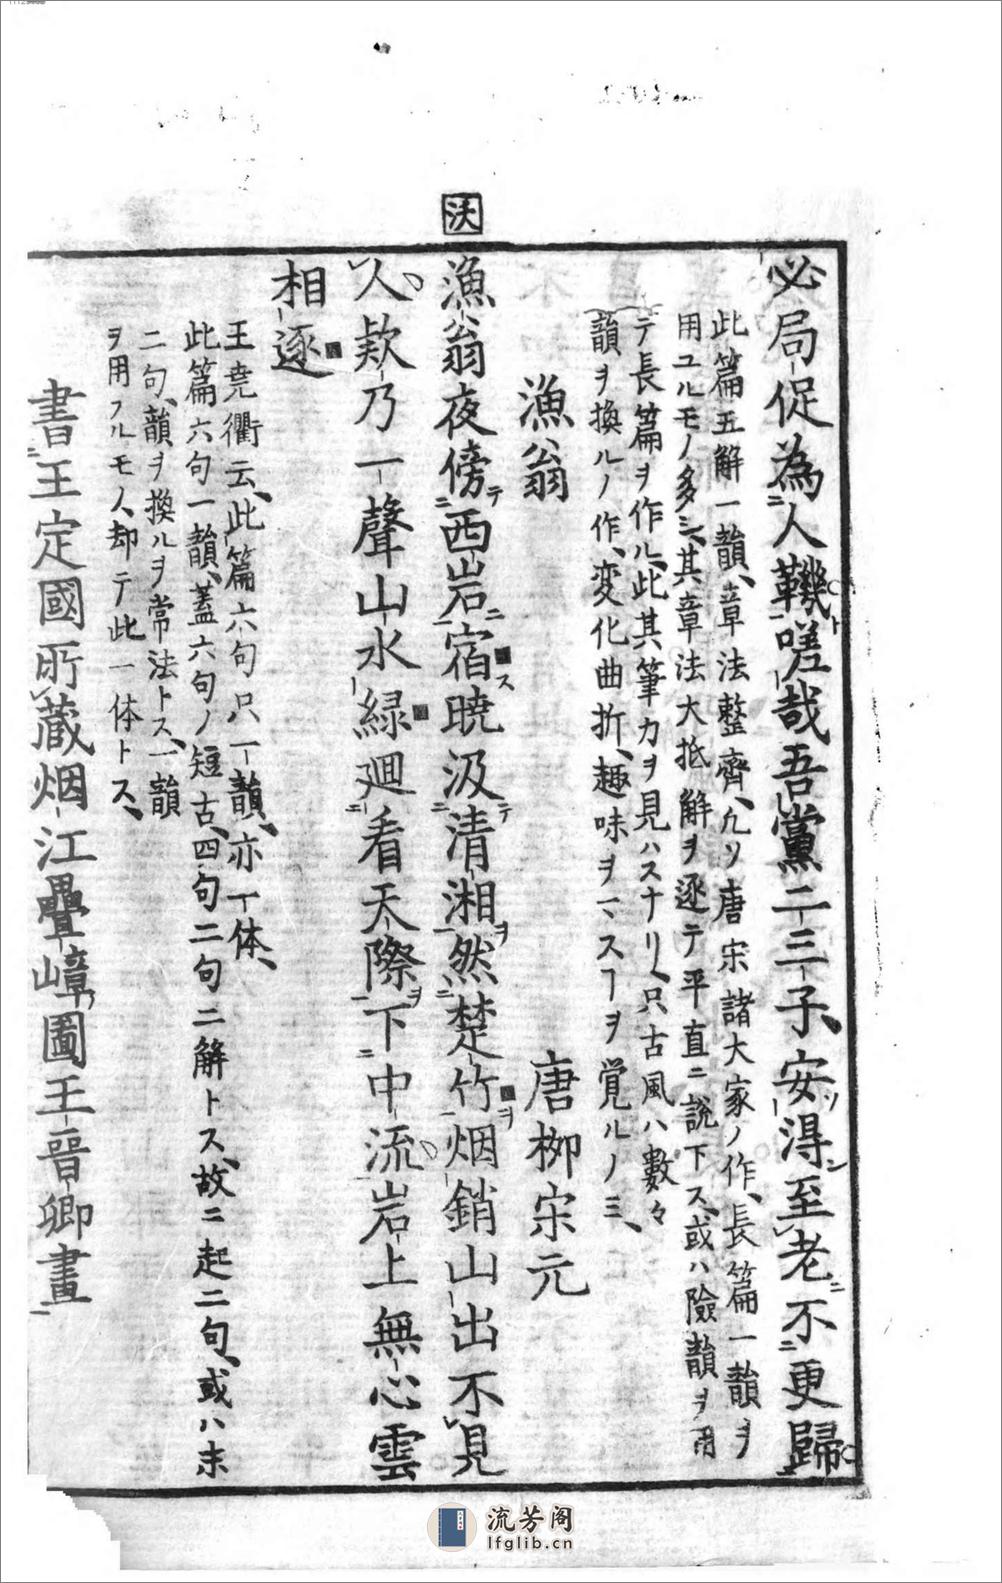 必局促為人鞿嗟哉吾黨二三子安得至老不更歸
此篇五解一韻、章法整齊、凡ソ唐宋諸大家ノ作、長篇一韻ヲ
用ユルモノ多シ、其章法大抵解ヲ逐テ平直ニ説下ス、或ハ險韻ヲ用
テ長篇ヲ作ル、此其筆力ヲ見ハスナリ、只古風ハ數々
韻ヲ換ルノ作、変化曲折、趣味ヲ
覚ルノミ、
漁翁 唐栁宋元
沃
漁翁夜傍西岩宿曉汲清湘然楚竹烟銷山出不見
人欸乃一聲山水緑廻看天際下中流岩上無心雲
相逐
王堯衢云、此篇六句只一韻、亦一体、
此篇六句一韻、蓋六句ノ短古、四句二句二解トス、故ニ起二句、或ハ末
二句、韻ヲ換ルヲ常法トス、一韻
ヲ用フルモノ、却テ此一体トス、
書王定國所蔵烟江疊嶂圖王晉卿畫
流芳阁
lfglib.cn